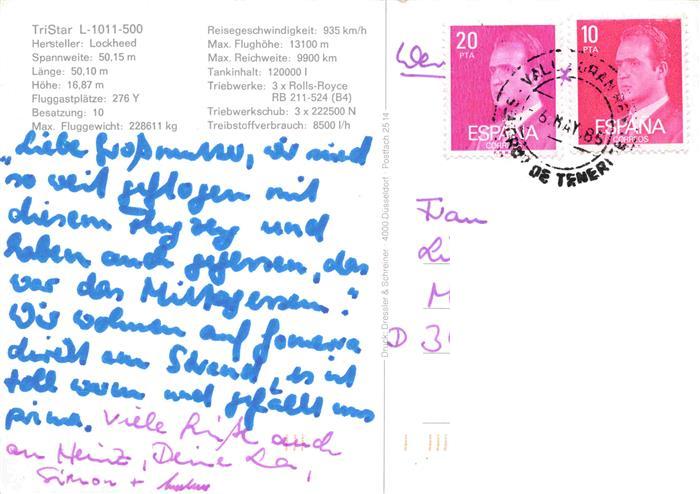 TriStar L-1011-500
Hersteller: Lockheed
Spannweite: 50,15 m
Länge: 50,10 m
Höhe: 16,87 m
Fluggastplätze: 276 Y
Besatzung: 10
Max. Fluggewicht: 228611 kg
Reisegeschwindigkeit: 935 km/h
Max. Flughöhe: 13100 m
Max. Reichweite: 9900 km
Tankinhalt: 120000 l
Triebwerke: 3 x Rolls-Royce
RB 211-524 (B4)
Triebwerkschub: 3 x 222500 N
Treibstoffverbrauch: 8500 l/h
"Liebe Großmutter, wir sind
so weit geflogen mit
diesem Flugzeug und
haben auch gegessen, das
war das Mittagessen."
Wir wohnen auf Gomera
direkt am Strand, es ist
toll warm und gefällt uns
prima. Viele Grüße auch
an Heinz, Deine
Simon +
Druck: Dressler & Schreiner · 4000 Düsseldorf · Postfach 25 14
20
PTA
ESPAÑA
CORREOS
10
PTA
ESPAÑA
CORREOS
MAY. 85
DE TENERI
Frau
Li
M
D 3